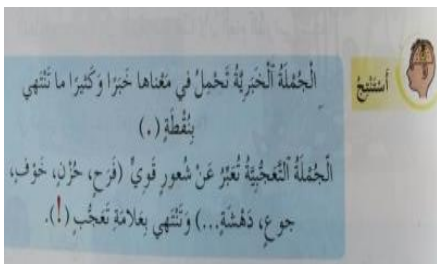 أَسْتَنْتِجُ
الْجُمْلَةُ ٱلْخَبَرِيَّةُ تَحْمِلُ في مَعْناها خَبَرًا وَكَثيرًا ما تَنْتَهي
بِنُقْطَةٍ (.)
الْجُمْلَةُ ٱلتَّعَجُّبِيَّةُ تُعَبِّرُ عَنْ شُعورٍ قَوِيٍّ (فَرَحٍ، حُزْنٍ، خَوْفٍ،
جوعٍ، دَهْشَةٍ...) وَتَنْتَهي بِعَلامَةِ تَعَجُّبٍ (!).